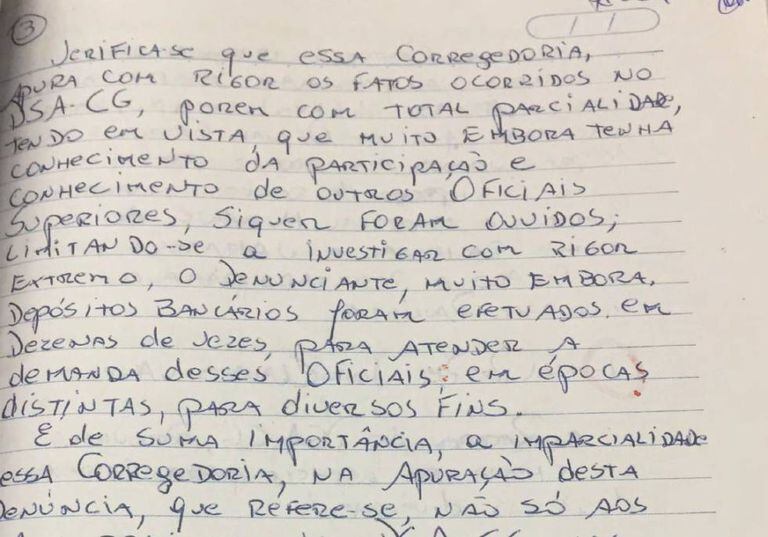 3
Verifica-se que essa Corregedoria,
apura com rigor os fatos ocorridos no
DSA-CG, porem com total parcialidade,
tendo em vista, que muito embora tenha
conhecimento da participação e
conhecimento de outros Oficiais
Superiores, siquer foram ouvidos;
limitando-se a investigar com rigor
extremo, o Denunciante, muito embora,
Depósitos Bancários foram efetuados, em
Dezenas de vezes, para atender a
demanda desses Oficiais; em épocas
distintas, para diversos fins.
É de suma importância, a imparcialidade
essa Corregedoria, na apuração desta
Denúncia, que refere-se, não só aos